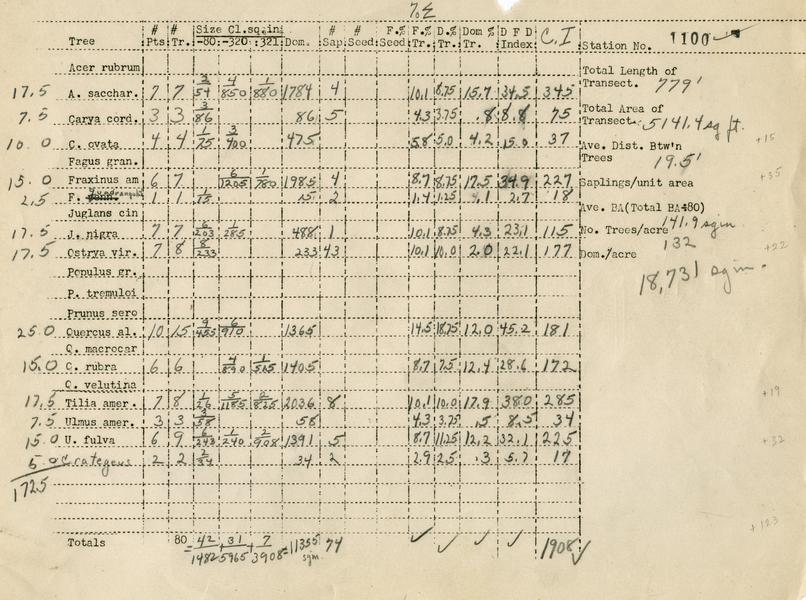 7.Σ
# # Size Cl.sq.in # # F.% F.% D.% Dom % D F D C.I
Tree Pts Tr. -80: -320: 321: Dom. Sap. Seed Seed Tr. Tr. Tr. Index
Station No. 1100
Acer rubrum
Total Length of
Transect. 779'
17.5 A. sacchar. 7 7 3/54 4/850 1/880 1784 4 10.1 8.75 15.7 34.5 345
Total Area of
Transect. 5141.4 sq ft.
7.5 Carya cord. 3 3 3/86 86 5 4.3 3.75 .8 8.8 75
10.0 C. ovata 4 4 1/75 3/400 475 5.8 5.0 4.2 15.0 37
+15
Ave. Dist. Btw'n
Trees 19.5'
Fagus gran.
15.0 Fraxinus am 6 7 6/1205 1/780 1985 4 8.7 8.75 17.5 34.9 227
+35
Saplings/unit area
2.5 F. quadrangul 1 1 1/15 15 2 1.4 1.25 .1 2.7 18
Juglans cin
Ave. BA(Total BA480)
141.9 sqin
17.5 J. nigra 7 7 6/203 1/285 488 1 10.1 8.75 4.3 23.1 115
No. Trees/acre
132
17.5 Ostrya vir. 7 8 8/233 233 43 10.1 10.0 2.0 22.1 177
+22
Dom./acre
18,731 sqin.
Populus gr.
P. tremuloi
Prunus sero
25.0 Quercus al. 10 15 9/455 6/910 1365 14.5 18.75 12.0 45.2 181
Q. macrocar
15.0 Q. rubra 6 6 4/890 1/515 1405 8.7 7.5 12.4 28.6 172
Q. velutina
17.5 Tilia amer. 7 8 1/26 5/1185 2/825 2036 8 10.1 10.0 17.9 38.0 285
+19
7.5 Ulmus amer. 3 3 3/58 58 4.3 3.75 .5 8.5 34
15.0 U. fulva 6 9 6/243 1/240 2/908 1391 5 8.7 11.25 12.2 32.1 225
+32
5.0 Crataegus 2 2 2/34 34 2 2.9 2.5 .3 5.7 17
172.5
+123
Totals 80 = 42/1482 + 31/5965 + 7/3908 = 11355 sqin 74 ✓ ✓ ✓ ✓ 1908 ✓